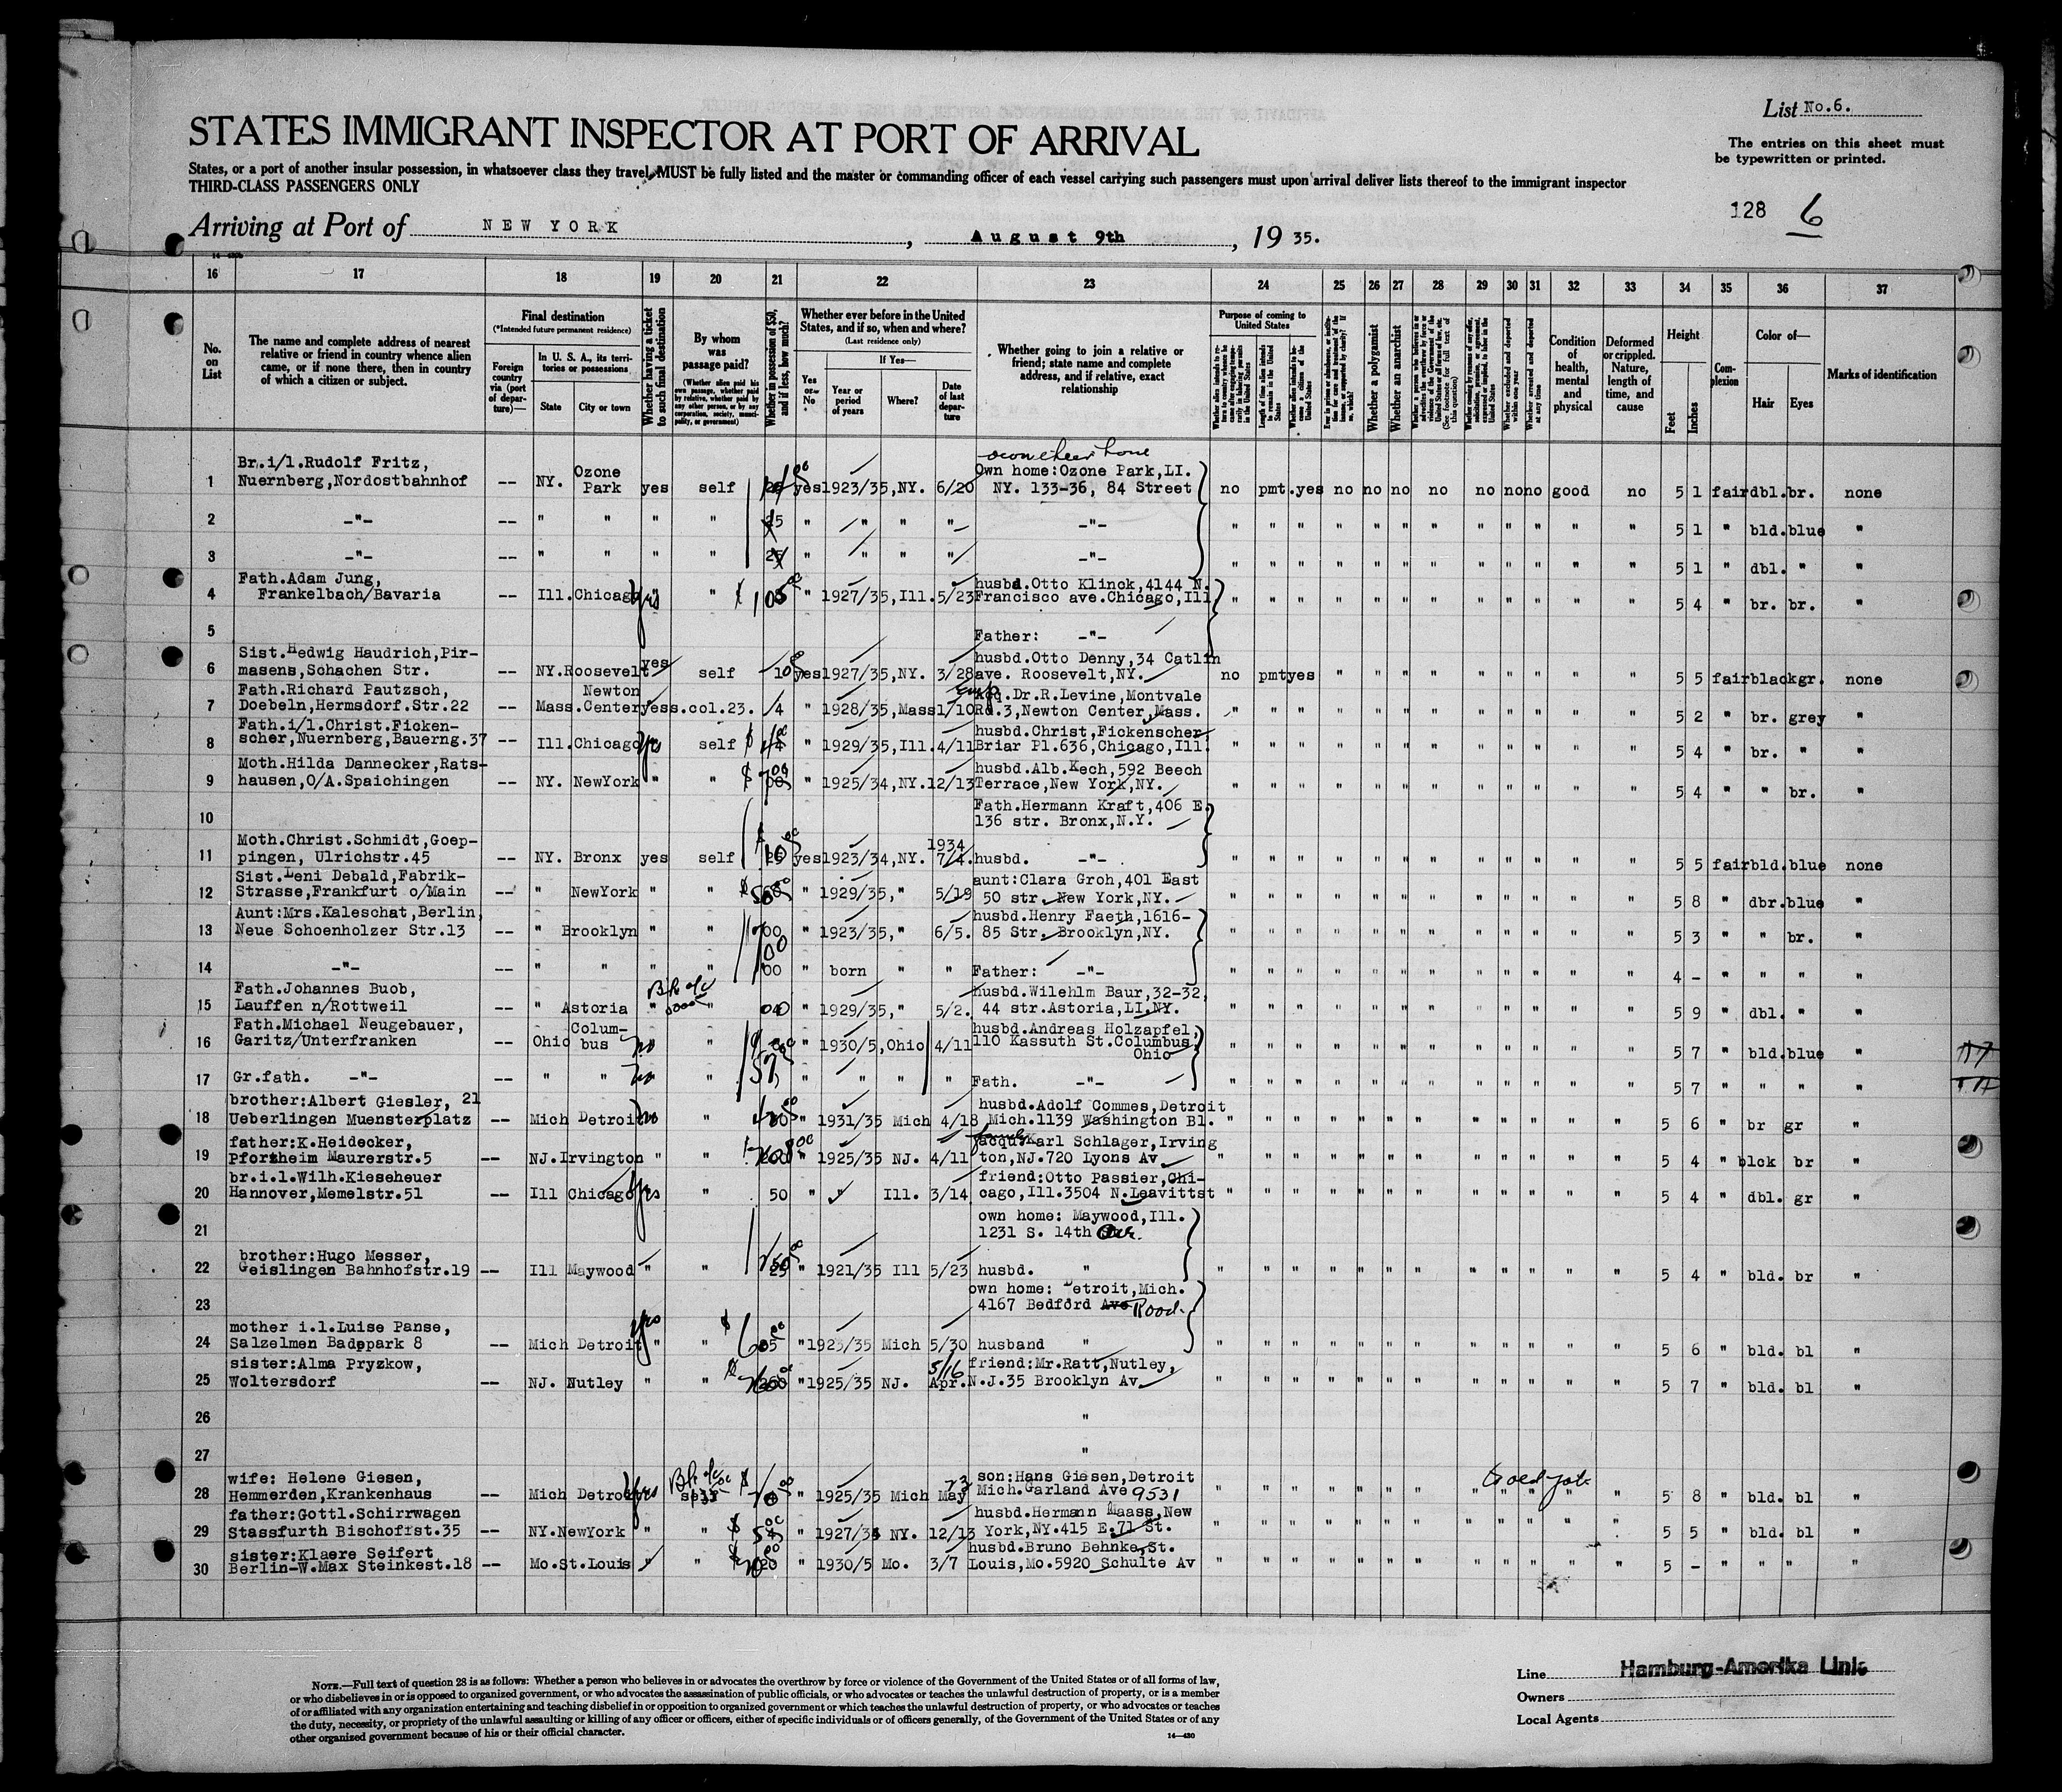 List No.6.
STATES IMMIGRANT INSPECTOR AT PORT OF ARRIVAL
The entries on this sheet must
be typewritten or printed.
States, or a port of another insular possession, in whatsoever class they travel, MUST be fully listed and the master or commanding officer of each vessel carrying such passengers must upon arrival deliver lists thereof to the immigrant inspector
THIRD-CLASS PASSENGERS ONLY
128 6
Arriving at Port of NEW YORK, August 9th, 1935.
16 17 18 19 20 21 22 23 24 25 26 27 28 29 30 31 32 33 34 35 36 37
No. on List
The name and complete address of nearest relative or friend in country whence alien came, or if none there, then in country of which a citizen or subject.
Final destination
(*Intended future permanent residence)
Foreign country via (port of departure)—
In U. S. A., its territories or possessions
State City or town
Whether having a ticket to such final destination
By whom was passage paid?
(Whether alien paid his own passage, whether paid by relative, whether paid by any other person, or by any corporation, society, municipality, or government)
Whether in possession of $50, and if less, how much?
Whether ever before in the United States, and if so, when and where?
(Last residence only)
Yes or No
If Yes—
Year or period of years Where? Date of last departure
Whether going to join a relative or friend; state name and complete address, and if relative, exact relationship
Purpose of coming to United States
Whether a polygamist
Whether an anarchist
Condition of health, mental and physical
Deformed or crippled. Nature, length of time, and cause
Height
Feet Inches
Complexion
Color of—
Hair Eyes
Marks of identification
1 Br.i/l.Rudolf Fritz, Nuernberg,Nordostbahnhof -- NY. Ozone Park yes self yes 1923/35,NY. 6/20 Own home:Ozone Park,LI. NY. 133-36, 84 Street no pmt. yes no no no no no no no good no 5 1 fair dbl. br. none
2 -"- -- " " " " 25 " " " "- -"- " " " " " " " " " " " " 5 1 " bld. blue "
3 -"- -- " " " " 25 " " " " -"- " " " " " " " " " " " " 5 1 " dbl. " "
4 Fath.Adam Jung, Frankelbach/Bavaria -- Ill. Chicago yes " " 1927/35,Ill. 5/23 husbd.Otto Klinck,4144 N. Francisco ave.Chicago,Ill. " " " " " " " " " " " " 5 4 " br. br. "
5 Father: -"-
6 Sist.Hedwig Haudrich,Pirmasens,Schachen Str. -- NY. Roosevelt yes self 10 yes 1927/35,NY. 3/28 husbd.Otto Denny,34 Catlin ave. Roosevelt,NY. no pmt yes " " " " " " " " " 5 5 fair black gr. none
7 Fath.Richard Pautzsch, Doebeln,Hermsdorf.Str.22 -- Mass. Newton Center yes s.col.23. 4 " 1928/35,Mass 1/10 Dr.R.Levine,Montvale Rd.3,Newton Center,Mass. " " " " " " " " " " " " 5 2 " br. grey "
8 Fath.i/l.Christ.Fickenscher,Nuernberg,Bauerng.37 -- Ill. Chicago yes self " 1929/35,Ill. 4/11 husbd.Christ,Fickenscher, Briar Pl.636,Chicago,Ill. " " " " " " " " " " " " 5 4 " br. " "
9 Moth.Hilda Dannecker,Ratshausen,O/A.Spaichingen -- NY. NewYork " " " 1925/34,NY. 12/13 husbd.Alb.Kech,592 Beech Terrace,New York,NY. " " " " " " " " " " " " 5 4 " " br. "
10 Fath.Hermann Kraft,406 E. 136 str. Bronx,N.Y.
11 Moth.Christ.Schmidt,Goeppingen, Ulrichstr.45 -- NY. Bronx yes self yes 1923/34,NY. 1934 7/4. husbd. -"- " " " " " " " " " " " " 5 5 fair bld. blue none
12 Sist.Leni Debald,Fabrik-Strasse,Frankfurt o/Main -- " NewYork " " " 1929/35, " 5/19 aunt:Clara Groh,401 East 50 str. New York,NY. " " " " " " " " " " " " 5 8 " dbr. blue "
13 Aunt:Mrs.Kaleschat,Berlin, Neue Schoenholzer Str.13 -- " Brooklyn " " " 1923/35, " 6/5. husbd.Henry Faeth,1616-85 Str. Brooklyn,NY. " " " " " " " " " " " " 5 3 " " br. "
14 -"- -- " " " " " born " " Father: -"- " " " " " " " " " " " " 4 - " " " "
15 Fath.Johannes Buob, Lauffen n/Rottweil -- " Astoria " " " 1929/35, " 5/2. husbd.Wilehlm Baur,32-32, 44 str.Astoria,LI.NY. " " " " " " " " " " " " 5 9 " dbl. " "
16 Fath.Michael Neugebauer, Garitz/Unterfranken -- Ohio Columbus no " " 1930/5,Ohio 4/11 husbd.Andreas Holzapfel, 110 Kassuth St.Columbus, Ohio " " " " " " " " " " " " 5 7 " bld. blue "
17 Gr.fath. -"- -- " " no " " " " " Fath. -"- " " " " " " " " " " " " 5 7 " " " "
18 brother:Albert Giesler, 21 Ueberlingen Muensterplatz -- Mich Detroit no " " 1931/35 Mich 4/18 husbd.Adolf Commes,Detroit Mich.1139 Washington Bl. " " " " " " " " " " " " 5 6 " br gr "
19 father:K.Heidecker, Pforzheim Maurerstr.5 -- NJ. Irvington " " " 1925/35 NJ. 4/11 Karl Schlager,Irvington,NJ.720 Lyons Av " " " " " " " " " " " " 5 4 " blck br "
20 br.i.l.Wilh.Kieseheuer Hannover,Memelstr.51 -- Ill Chicago yes " 50 " " Ill. 3/14 friend:Otto Passier,Chicago,Ill.3504 N.Leavittst " " " " " " " " " " " " 5 4 " dbl. gr "
21 own home: Maywood,Ill. 1231 S. 14th Ave.
22 brother:Hugo Messer, Geislingen Bahnhofstr.19 -- Ill Maywood " " " 1921/35 Ill 5/23 husbd. " " " " " " " " " " " " " 5 4 " bld. br "
23 own home: Detroit,Mich. 4167 Bedford Ave Road.
24 mother i.l.Luise Panse, Salzelmen Badepark 8 -- Mich Detroit yes " " " 1923/35 Mich 5/30 husband " " " " " " " " " " " " " 5 6 " bld. bl "
25 sister:Alma Pryzkow, Woltersdorf -- NJ. Nutley " " " 1925/35 NJ. 5/16 Apr. friend:Mr.Ratt,Nutley, N.J.35 Brooklyn Av " " " " " " " " " " " " 5 7 " bld. bl "
26 "
27 "
28 wife: Helene Giesen, Hemmerden,Krankenhaus -- Mich Detroit yes " 1925/35 Mich May 23 son:Hans Giesen,Detroit Mich.Garland Ave 9531 " " " " " " " " " " " " 5 8 " bld. bl "
29 father:Gottl.Schirrwagen Stassfurth Bischofrst.35 -- NY. NewYork " " " 1927/34 NY. 12/13 husbd.Hermann Maass,New York,NY.415 E.71 St. " " " " " " " " " " " " 5 5 " bld. bl "
30 sister:Klaere Seifert Berlin-W.Max Steinkest.18 -- Mo. St.Louis " " " 1930/5 Mo. 3/7 husbd.Bruno Behnke,St. Louis,Mo.5920 Schulte Av " " " " " " " " " " " " 5 - " " " "
NOTE.—Full text of question 28 is as follows: Whether a person who believes in or advocates the overthrow by force or violence of the Government of the United States or of all forms of law,
or who disbelieves in or is opposed to organized government, or who advocates the assassination of public officials, or who advocates or teaches the unlawful destruction of property, or is a member
of or affiliated with any organization entertaining and teaching disbelief in or opposition to organized government or which teaches the unlawful destruction of property, or who advocates or teaches
the duty, necessity, or propriety of the unlawful assaulting or killing of any officer or officers, either of specific individuals or of officers generally, of the Government of the United States or of any
other organized government because of his or their official character.
14—430
Line Hamburg-Amerika Linie
Owners
Local Agents